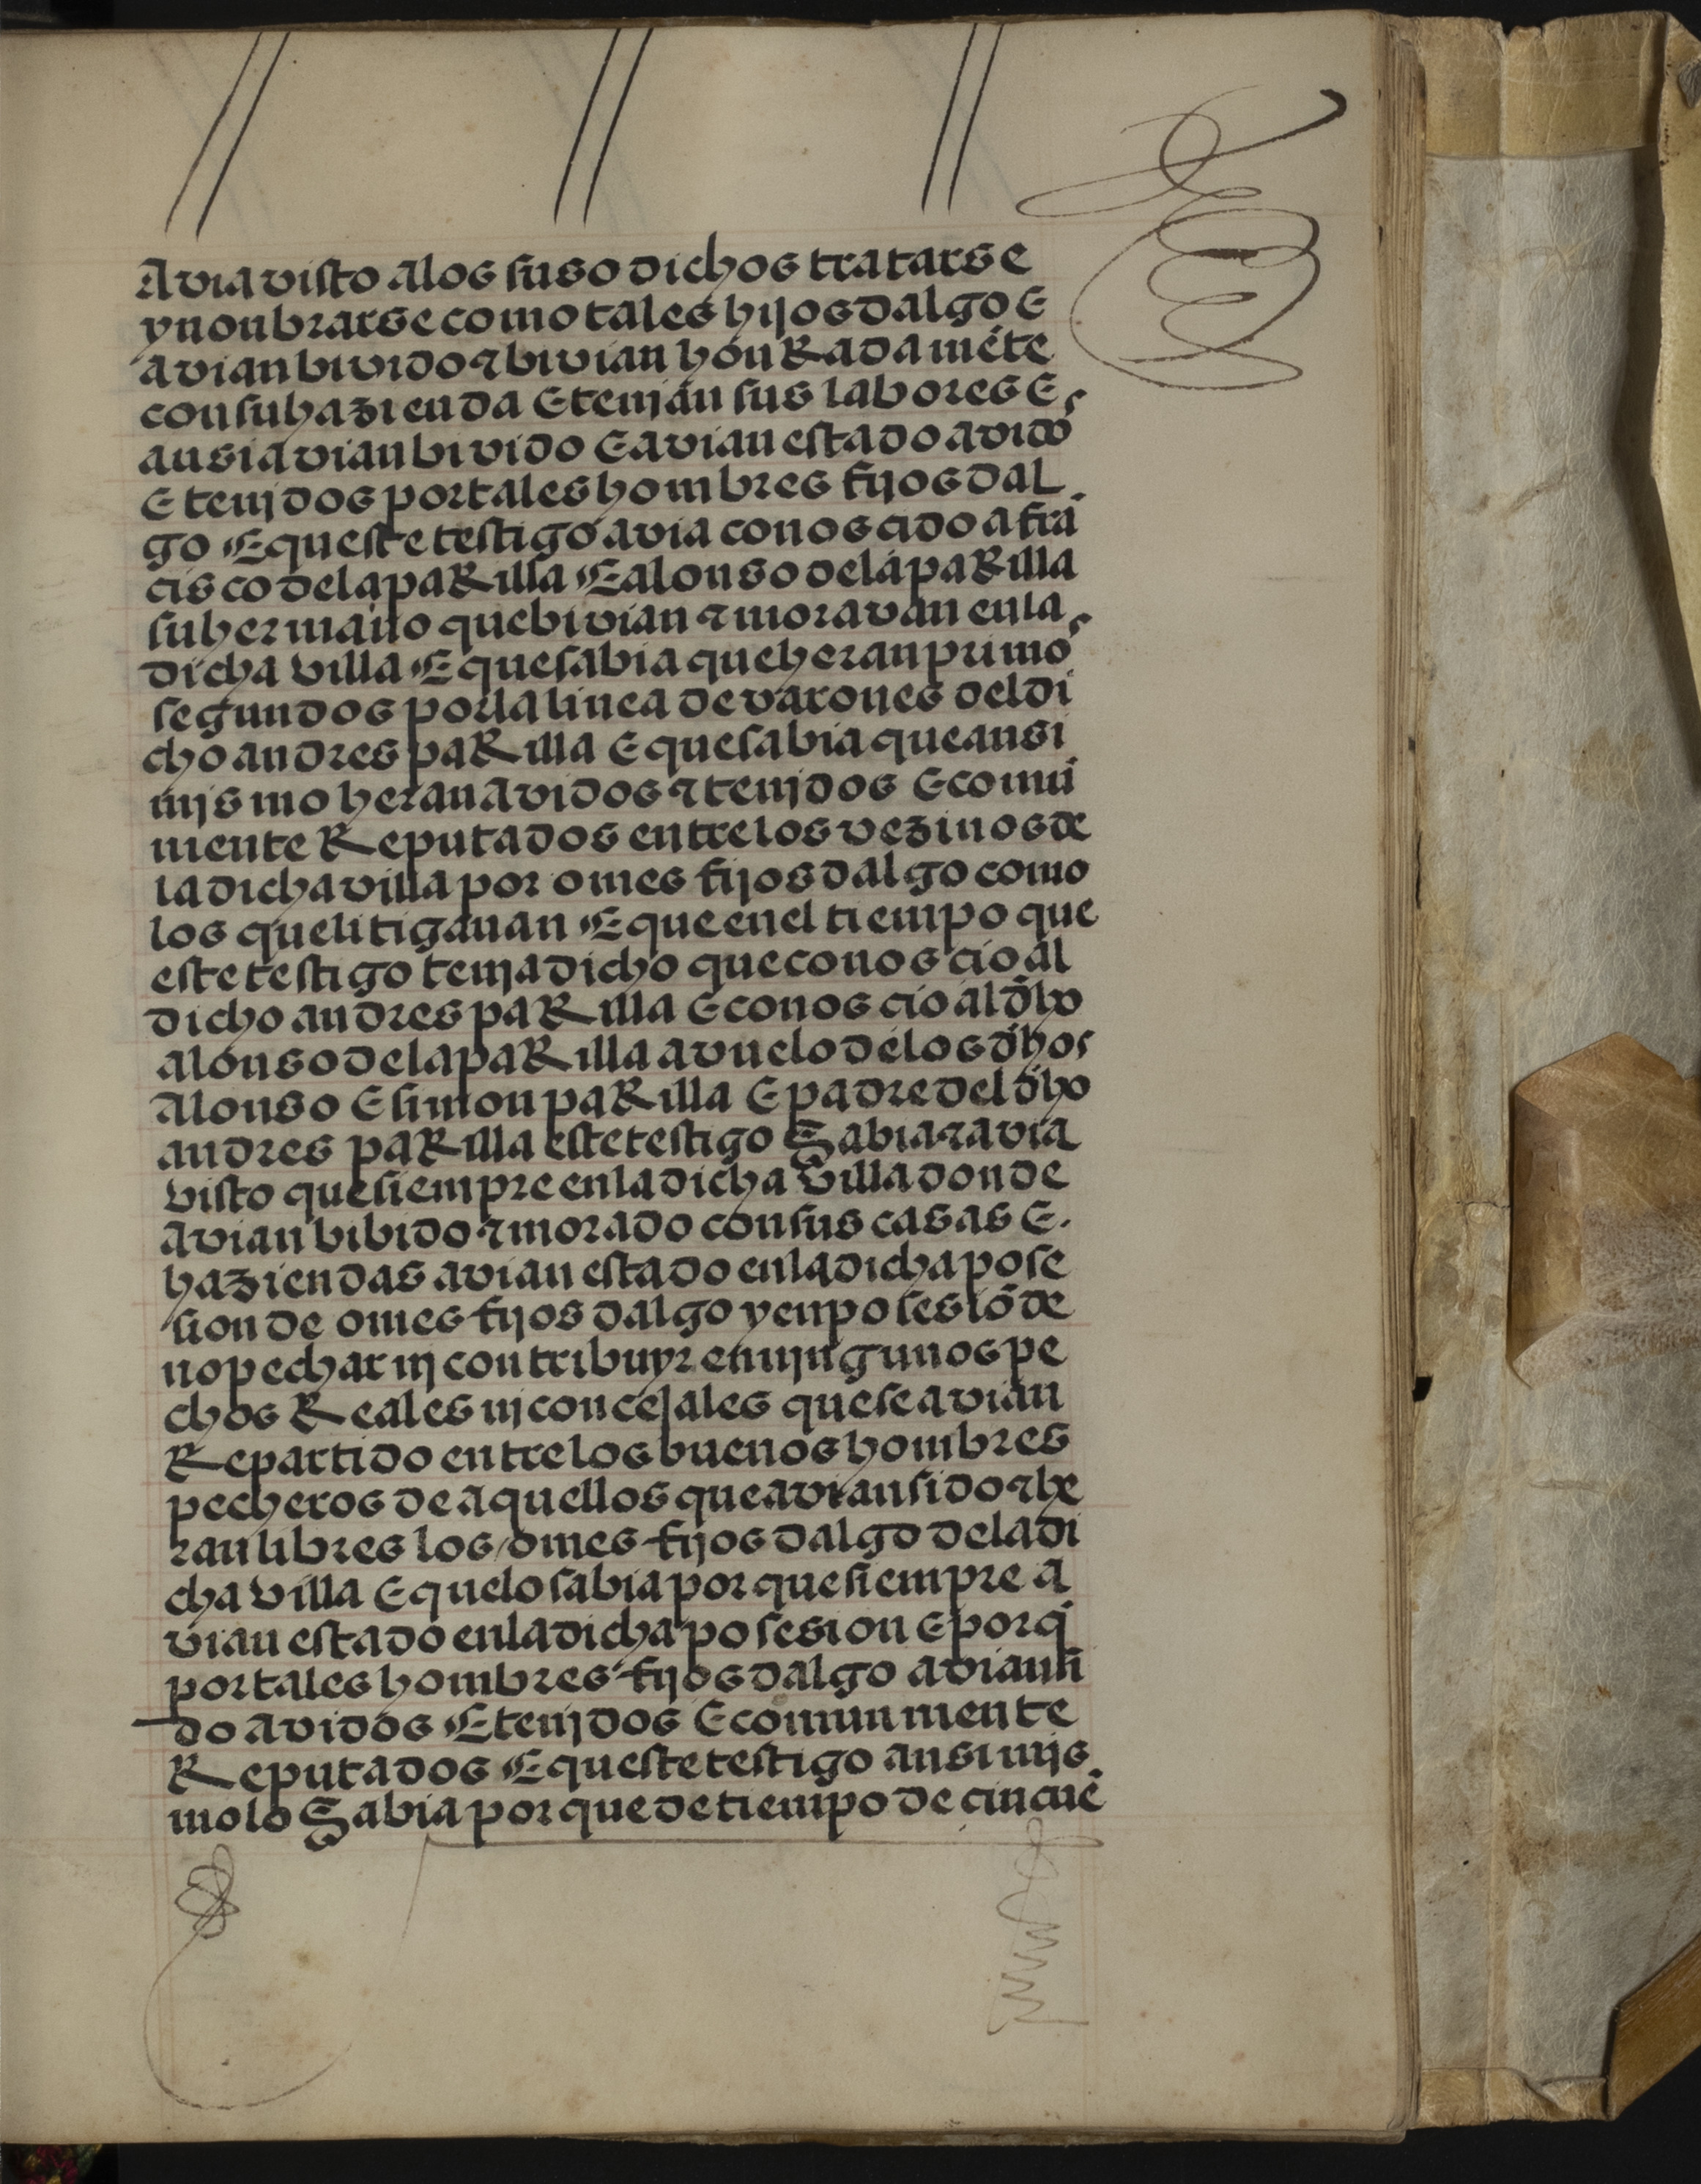 Avia visto alos suso dichos tratarse
y nonbrarse como tales hijos dalgo E
avian bivido ⁊ bivian honRadamēte
con su hazienda E tenjan sus labores E
ansi avian bivido E avian estado avidos
E tenjdos por tales hombres fijos dal
go E queste testigo avia conoscido a frā
cisco dela paRilla E alonso dela paRilla
su hermano que bivian ⁊ moravan en la
dicha villa E que sabia que heran primos
segundos por la linea de varones del di
cho andres paRilla E que sabia que ansi
mjsmo heran avidos ⁊ tenjdos E comū
mente Reputados entre los vezinos de
la dicha villa por omes fijos dalgo como
los que litigauan E que en el tiempo que
este testigo tenja dicho que conoscio al
dicho andres paRilla E conoscio al dho
alonso dela paRilla avuelo delos dhos
Alonso E simon paRilla E padre del dho
andres paRilla este testigo Sabia ⁊ avia
visto que siempre en la dicha villa donde
avian bibido ⁊ morado con sus casas E.
haziendas avian estado en la dicha pose
sion de omes fijos dalgo y en posesiō de
no pechar nj contribuyr en njngunos pe
chos Reales nj concejales que se avian
Repartido entre los buenos hombres
pecheros de aquellos que avian sido ⁊ he
ran libres los omes fijos dalgo dela di
cha villa E quelo sabia por que siempre a
vian estado en la dicha posesion E porq̄
por tales hombres fijos dalgo avian si
do avidos E tenjdos E comunmente
Reputados E queste testigo ansi mjs
molo Sabia por que de tiempo de cincuē